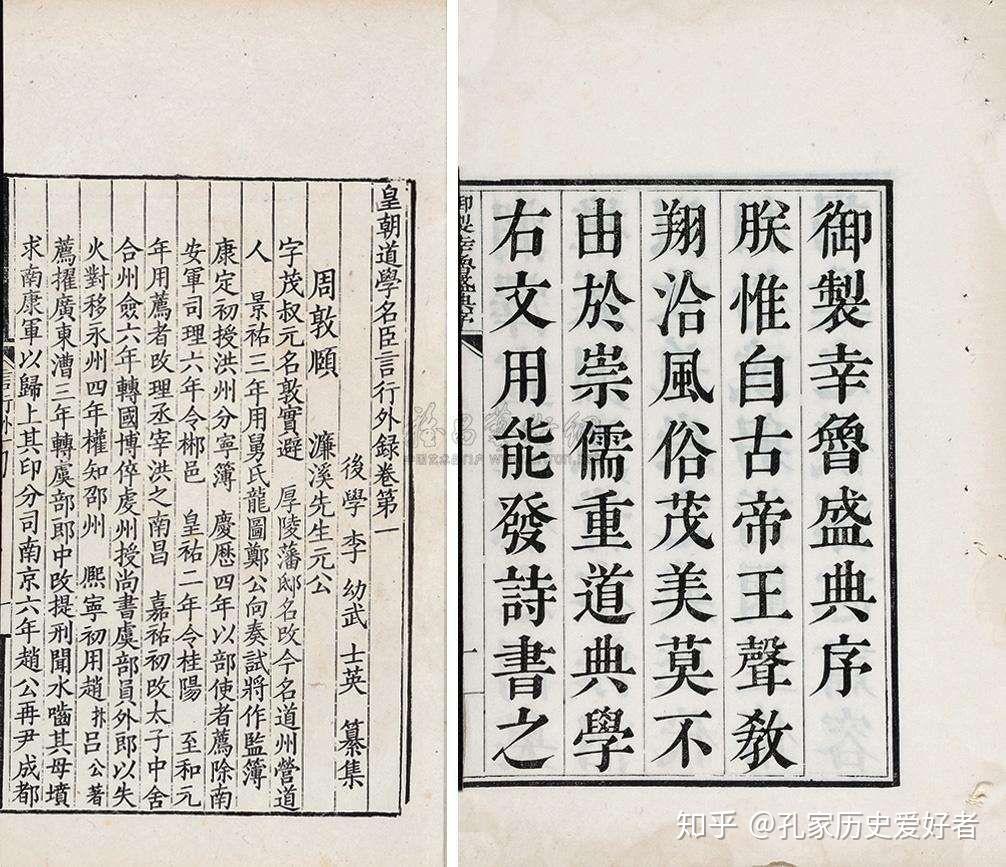 御製幸魯盛典序
朕惟自古帝王聲教
翔洽風俗茂美莫不
由於崇儒重道典學
右文用能發詩書之
皇朝道學名臣言行外録卷第一
後學 李 幼武 士英 纂集
周敦頤 濂溪先生元公
字茂叔元名敦實避 厚陵藩邸名改今名道州營道
人 景祐三年用舅氏龍圖鄭公向奏試將作監簿
康定初授洪州分寧簿 慶曆四年以部使者薦除南
安軍司理六年令郴邑 皇祐二年令桂陽 至和元
年用薦者改理丞宰洪之南昌 嘉祐初改太子中舍
合州僉六年轉國博倅虔州授尚書虞部員外郎以失
火對移永州四年權知邵州 熙寧初用趙抃吕公著
薦擢廣東漕三年轉虞部郎中改提刑聞水嚙其母墳
求南康軍以歸上其印分司南京六年趙公再尹成都
知乎 @孔家历史爱好者